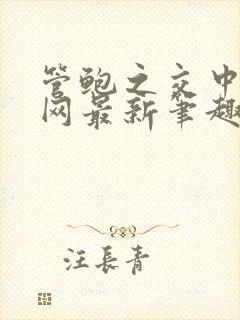 管鲍之交中
网最新笔趣
汪長青